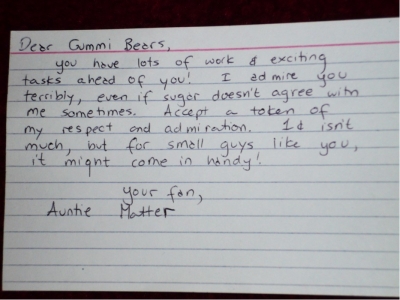 Dear Gummi Bears,
you have lots of work & exciting
tasks ahead of you! I admire you
terribly, even if sugar doesn't agree with
me sometimes. Accept a token of
my respect and admiration. 1¢ isn't
much, but for small guys like you,
it might come in handy!
your fan,
Auntie Matter